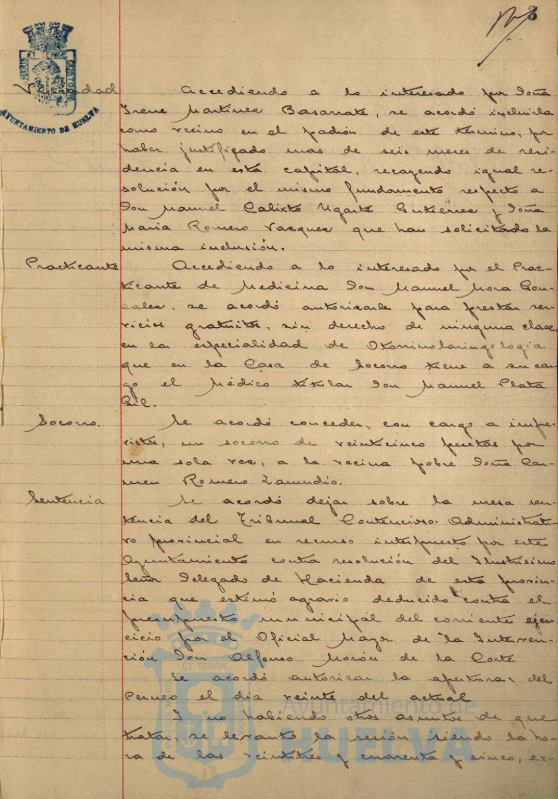 Vecindad
Accediendo a lo interesado por Doña
Irene Martinez Basarrate, se acordó incluirla
como vecino en el padrón de este término, por
haber justificado mas de seis meses de resi-
dencia en esta capital, recayendo igual re-
solución por el mismo fundamento respecto a
Don Manuel Calixto Ugarte Gutiérrez y Doña
Maria Romero Vazquez que han solicitado la
misma inclusión.
Practicante
Accediendo a lo interesado por el Prac-
ticante de Medicina Don Manuel Mora Gon-
zalez, se acordó autorizarle para prestar ser-
vicios gratuitos, sin derecho de ninguna clase,
en la especialidad de Otorrinolaringologia
que en la Casa de Socorro tiene a su car-
go el Médico titular Don Manuel Plata
Gil.
Socorro.
Se acordó conceder, con cargo a impre-
vistos, un socorro de veinticinco pesetas por
una sola vez, a la vecina pobre Doña Car-
men Romero Zamudio.
Sentencia
Se acordó dejar sobre la mesa sen-
tencia del Tribunal Contencioso-Administrati-
vo provincial en recurso interpuesto por este
Ayuntamiento contra resolución del Ilustrísimo
Señor Delegado de Hacienda de esta provin-
cia que estimó agravio deducido contra el
presupuesto municipal del corriente ejer-
cicio por el Oficial Mayor de la Interven-
ción Don Alfonso Morón de la Corte
Se acordó autorizar la apertura del
Perneo el dia veinte del actual
Y no habiendo otros asuntos de que
tratar, se levantó la sesión siendo la ho-
ra de las veintitres y cuarenta y cinco, ex-
AYUNTAMIENTO DE HUELVA
ET TERRAE
Ayuntamiento de
HUELVA